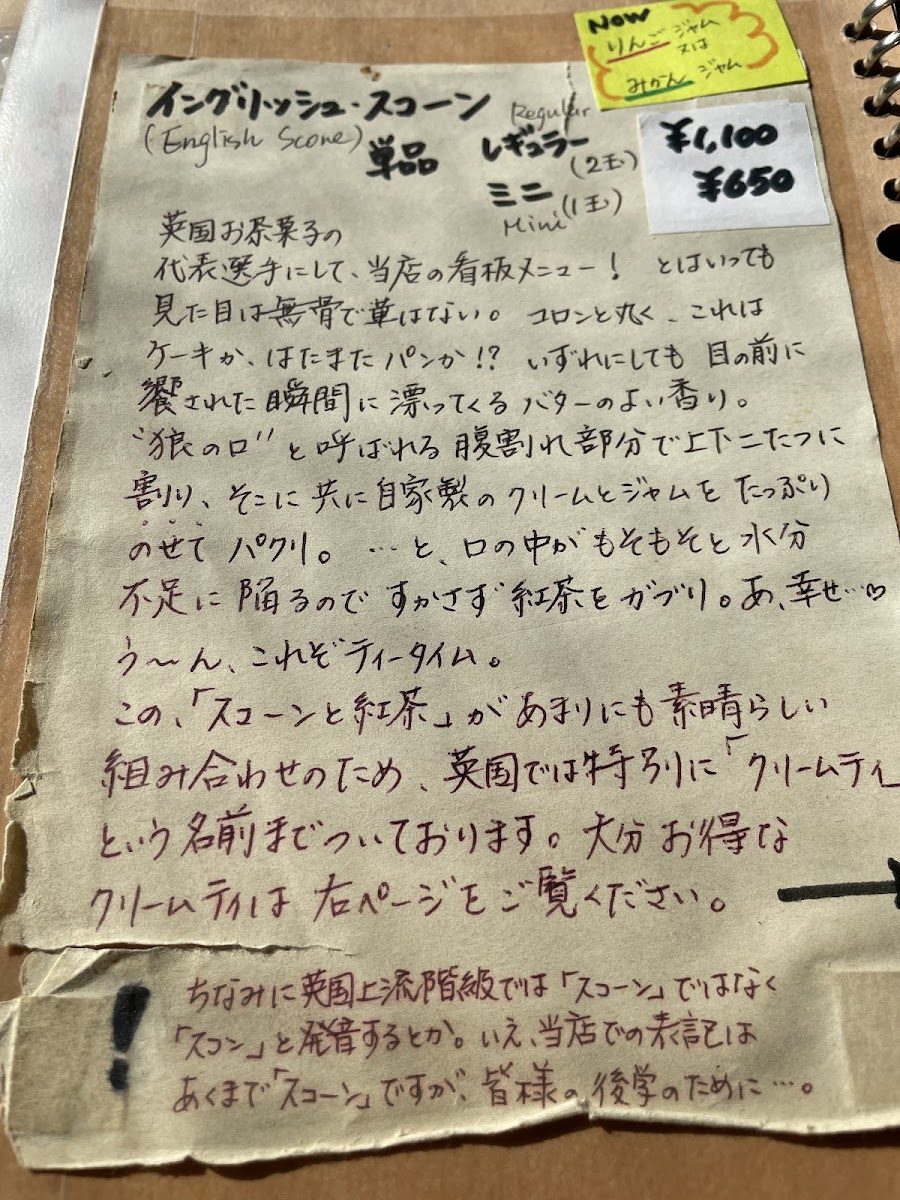 NOW
りんごジャム
又は
みかんジャム
イングリッシュ・スコーン
(English Scone)
単品
Regular
レギュラー(2玉)
¥1,100
ミニ(1玉)
Mini
¥650
英国お茶菓子の
代表選手にして、当店の看板メニュー! とはいっても
見た目は無骨で華はない。コロンと丸く、これは
ケーキか、はたまたパンか!? いずれにしても目の前に
饗された瞬間に漂ってくるバターのよい香り。
“狼の口”と呼ばれる腹割れ部分で上下二たつに
割り、そこに共に自家製のクリームとジャムをたっぷり
のせてパクリ。…と、口の中がもそもそと水分
不足に陥るのですかさず紅茶をガブリ。あ、幸せ…♡
う〜ん、これぞティータイム。
この、「スコーンと紅茶」があまりにも素晴らしい
組み合わせのため、英国では特別に「クリームティ
という名前までついております。大分お得な
クリームティは右ページをご覧ください。
!
ちなみに英国上流階級では「スコーン」ではなく
「スコン」と発音するとか。いえ、当店での表記は
あくまで「スコーン」ですが、皆様の後学のために…。